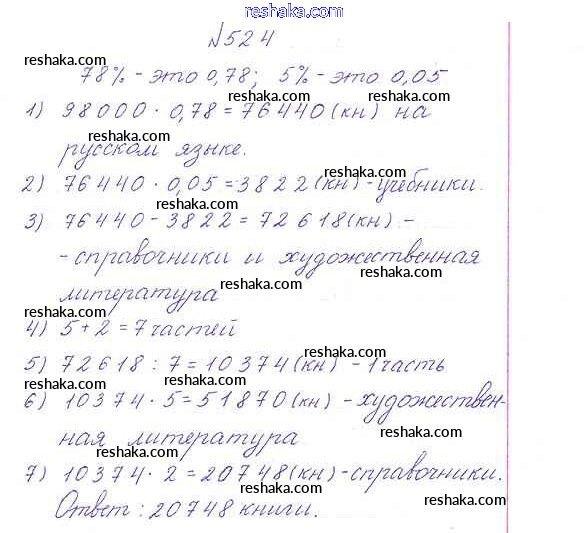 reshaka.com
№524
reshaka.com
78% - это 0,78; 5% - это 0,05
reshaka.com reshaka.com
1) 98000 · 0,78 = 76440 (кн) на
reshaka.com
русском языке.
reshaka.com
2) 76440 · 0,05 = 3822 (кн) - учебники.
reshaka.com
3) 76440 - 3822 = 72618 (кн) -
reshaka.com
- справочники и художественная
reshaka.com
литература
reshaka.com
4) 5 + 2 = 7 частей
reshaka.com
5) 72618 : 7 = 10374 (кн) - 1 часть
reshaka.com reshaka.com
6) 10374 · 5 = 51870 (кн) - художествен-
reshaka.com
ная литература
reshaka.com
7) 10374 · 2 = 20748 (кн) - справочники.
reshaka.com reshaka.com
Ответ: 20748 книги.
reshaka.com